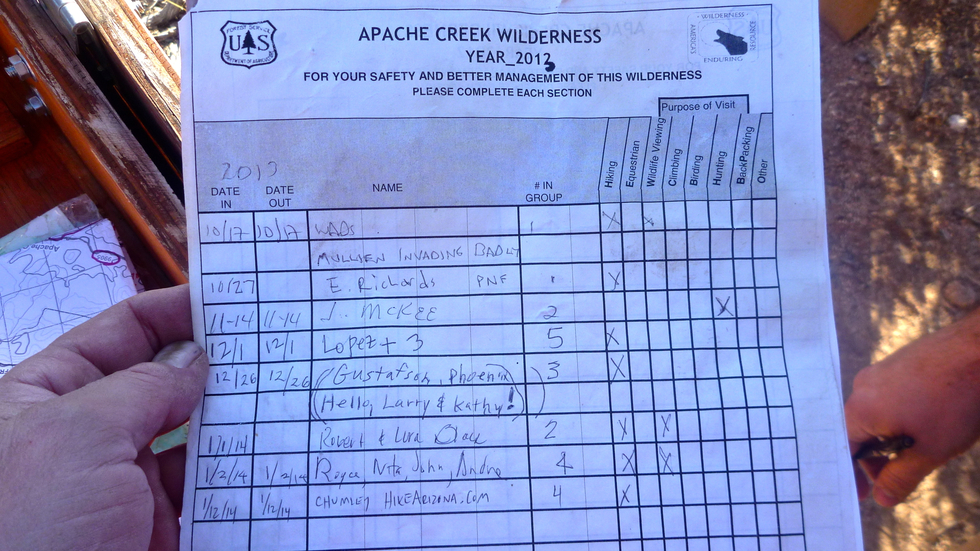 FOREST SERVICE
U S
DEPARTMENT OF AGRICULTURE
APACHE CREEK WILDERNESS
YEAR_2013
WILDERNESS
AMERICA'S
ENDURING
FOR YOUR SAFETY AND BETTER MANAGEMENT OF THIS WILDERNESS
PLEASE COMPLETE EACH SECTION
Purpose of Visit
2013
DATE IN DATE OUT NAME # IN GROUP Hiking Equestrian Wildlife Viewing Climbing Birding Hunting BackPacking Other
10/17 10/17 WADS 1 X X
MULLIEN INVADING BADLY
10/27 E. Richards PNF 1 X
11-14 11-14 J. MCKEE 2 X
12/1 12/1 Lopez + 3 5 X
12/26 12/26 (Gustafson, Phoenix) 3 X
(Hello, Larry & Kathy!)
1/1/14 Robert & 2 X X
1/2/14 1/2/14 Royce, John, Andre 4 X X
1/12/14 1/12/14 CHUMLEY HIKEARIZONA.COM 4 X
Apache